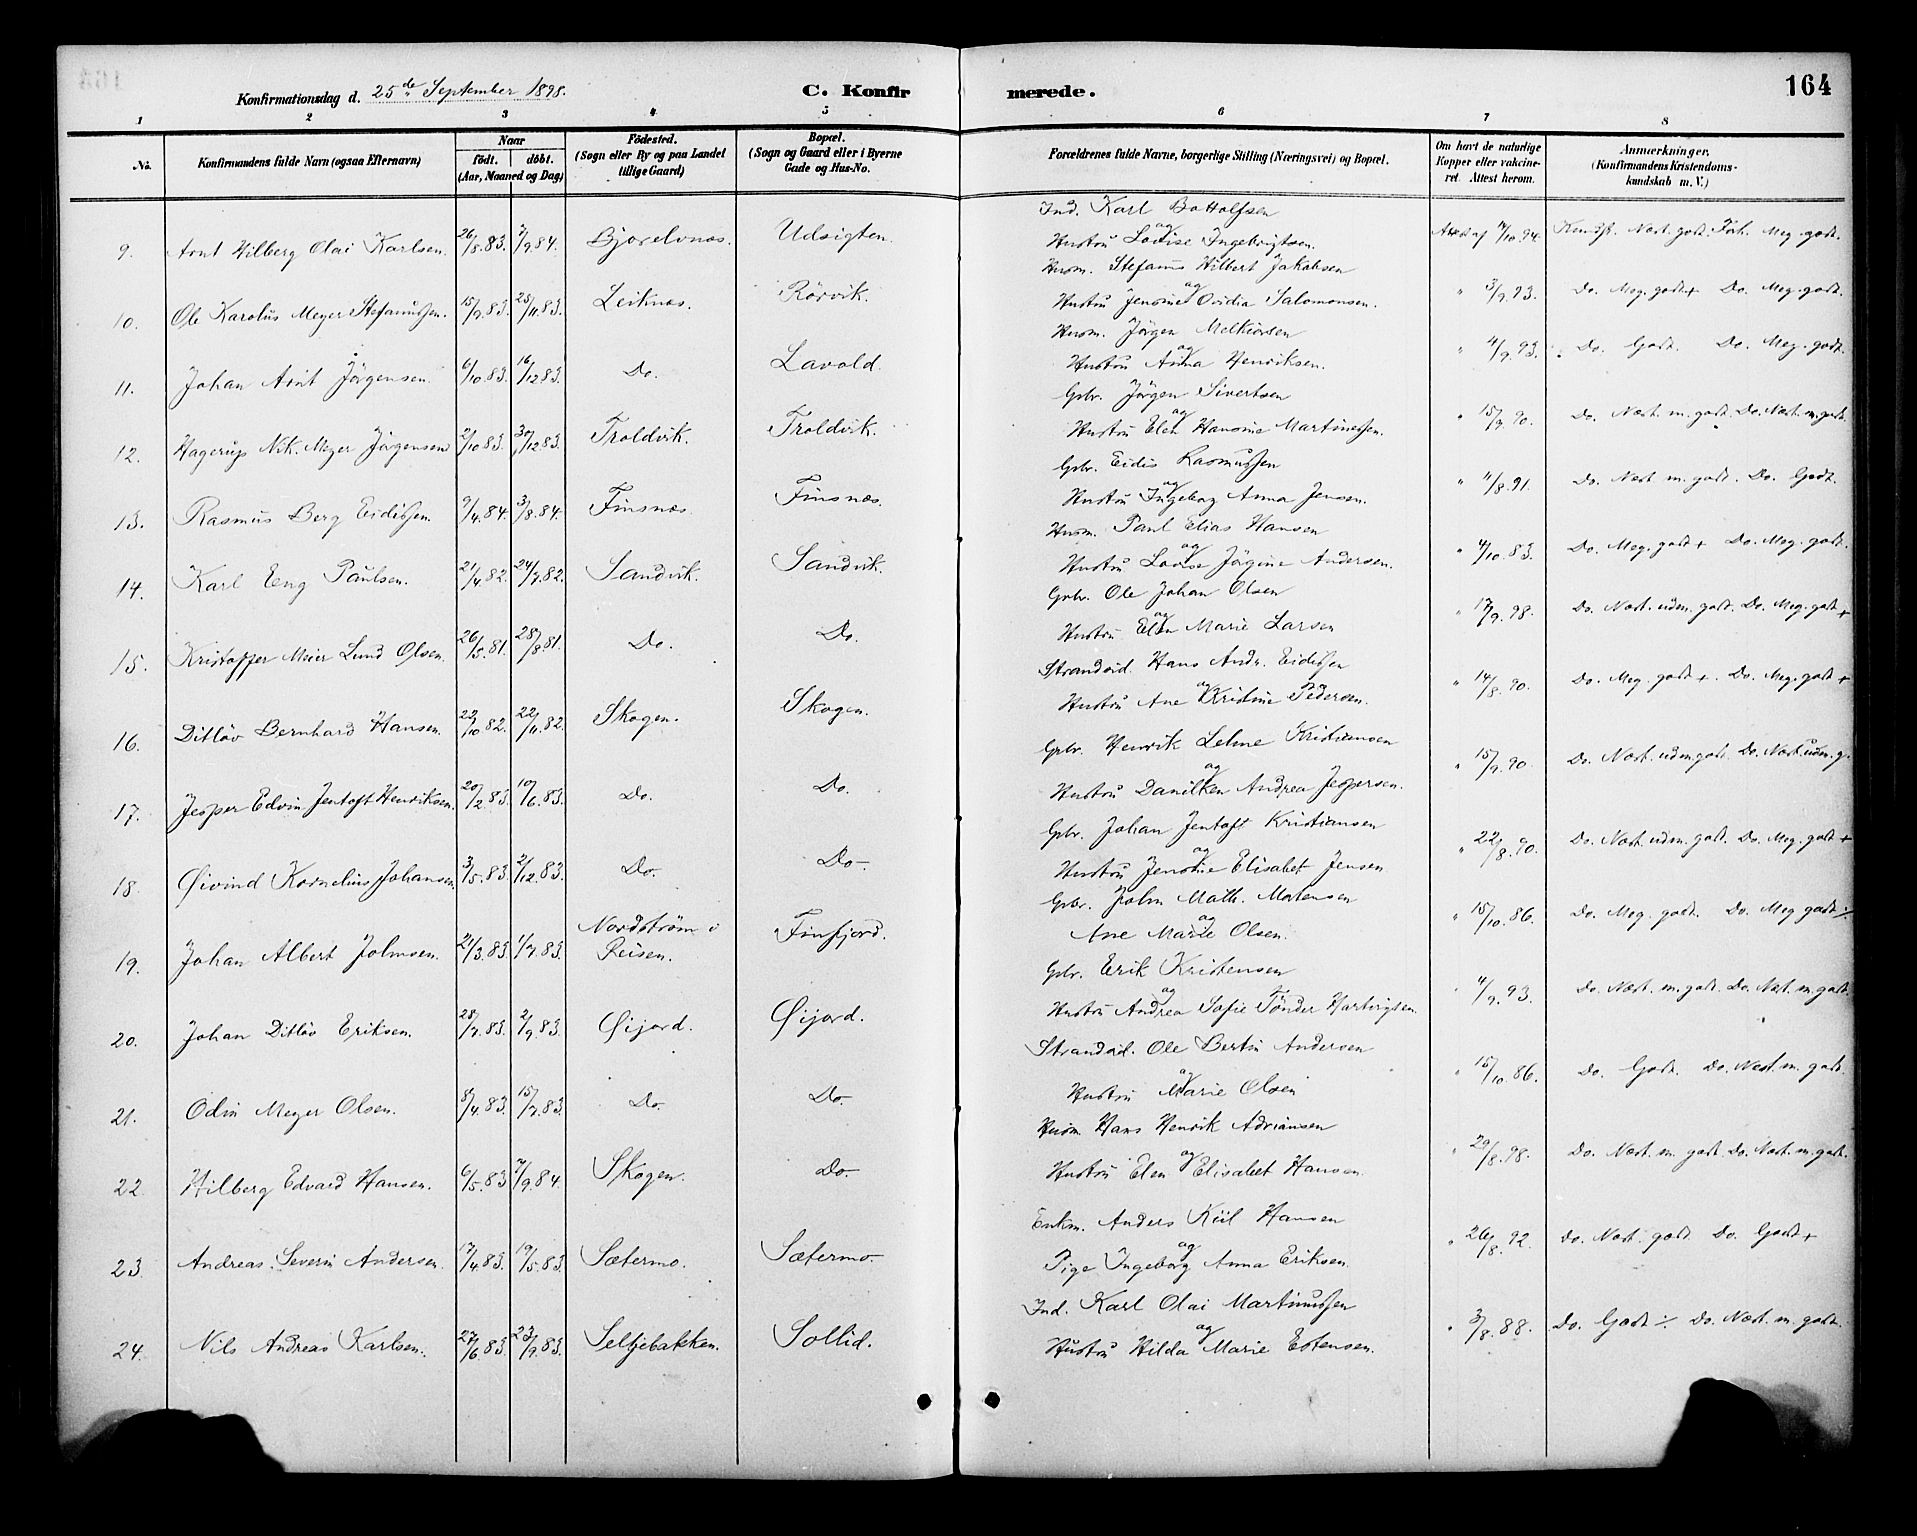 Konfirmationsdag d. 25de September 1898.
C. Konfirmerede.
164
1 2 3 4 5 6 7 8
No.
Konfirmandens fulde Navn (ogsaa Efternavn)
Naar
födt. döbt.
(Aar, Maaned og Dag)
Födested.
(Sogn eller By og paa Landet
tillige Gaard)
Bopæl.
(Sogn og Gaard eller i Byerne
Gade og Hus-No.
Forældrenes fulde Navne, borgerlige Stilling (Næringsvei) og Bopæl.
Om havt de naturlige
Kopper eller vakcine-
ret. Attest herom.
Anmærkninger,
(Konfirmandens Kristendoms-
kundskab m. V.)
Ind. Karl Bottolfsen
9. Arnt Hilberg Olai Karlsen. 26/8.83. 7/9.84. Bjorelvnæs. Udsigten. og Hustru Lovise Ingebrigtsen. Attest af 14/10.94. Kundsk. Næst. godt. Forh. Meg. godt.
Husm. Stefanus Hilbert Jakobsen
10. Ole Karolus Meyer Stefanussen. 15/9.83. 25/11.83. Leiknæs. Rörvik. og Hustru Jensine Ovidia Salomonsen. " 3/9.93. Do. Meg. godt+ Do. Meg. godt.
Husm. Jörgen Melkiorsen
11. Johan Arnt Jörgensen. 6/10.83. 16/12.83. Do. Lavold. og Hustru Anna Henriksen. " 4/9.93. Do. Godt. Do. Meg. godt.
Gbr. Jörgen Sivertsen
12. Hagerup Nik. Meyer Jörgensen 2/10.83. 30/12.83. Troldvik. Troldvik. og Hustru Elen Hansine Martinessen. " 15/9.90. Do. Næst. m. godt. Do. Næst. m. godt.
Gbr. Eidis Rasmussen
13. Rasmus Berg Eidissen. 9/4.84. 3/8.84. Finsnæs. Finsnæs. og Hustru Ingeborg Anna Jensen. " 4/8.91. Do. Næst m. godt. Do. Godt.
Husm. Paul Elias Hansen
14. Karl Eng Paulsen. 21/4.82. 24/7.82. Sandvik. Sandvik. og Hustru Lovise Jörgine Andersen. " 4/10.83. Do. Meg. godt+ Do. Meg. godt.
Gbr. Ole Johan Olsen
15. Kristoffer Meier Lund Olsen. 26/5.81. 28/8.81. Do. Do. og Hustru Elen Marie Larsen " 17/9.98. Do. Næst. udm. godt. Do. Meg. godt+
Strandsid. Hans Andr. Eidissen
16. Ditløv Bernhard Hansen. 22/10.82. 22/11.82. Skogen. Skogen. og Hustru Ane Kristine Pedersen. " 14/8.90. Do. Meg. godt+. Do. Meg. godt+
Gbr. Henrik Lehne Kristiansen
17. Jesper Edvin Jentoft Henriksen. 20/2.83. 10/6.83. Do. Do. og Hustru Danilken Andrea Jespersen. " 15/9.90. Do. Næst. udm. godt. Do. Næst. udm. g.
Gbr. Johan Jentoft Kristiansen
18. Øivind Kornelius Johansen. 3/5.83. 2/12.83. Do. Do. og Hustru Jensine Elisabet Jensen. " 22/8.90. Do. Næst. udm. godt. Do. Meg. godt+
Gbr. John Math. Mortensen
19. Johan Albert Johnsen. 21/3.83. 1/7.83. Nordström i Reisen. Finfjord. og Ane Marie Olsen. " 15/10.86. Do. Meg. godt. Do. Meg godt÷
Gbr. Erik Kristensen
20. Johan Ditløv Eriksen. 28/7.83. 2/9.83. Øijord. Øijord. og Hustru Andrea Sofie Tönder Hartvigsen. " 4/9.93. Do. Næst. m. godt. Do. Næst. m. godt.
Strandsid. Ole Bertin Andersen
21. Odin Meyer Olsen. 8/4.83. 15/7.83. Do. Do. og Hustru Marie Olsen " 15/10.86. Do. Godt. Do. Næst. m. godt.
Husm. Hans Henrik Adriansen
22. Hilberg Edvard Hansen. 6/5.83 7/9.84. Skogen. Do. og Hustru Elen Elisabet Hansen. " 29/8.98. Do. Næst. m. godt. Do. Næst. m. godt.
Enkm. Anders Kiil Hansen
23. Andreas Severin Andersen. 17/4.83. 19/5.83. Sætermo. Sætermo. og Pige Ingeborg Anna Eriksen. " 26/8.92. Do. Næst. godt. Do. Godt+
Ind. Karl Olai Martinussen
24. Nils Andreas Karlsen. 27/6.83. 23/9.83. Seljebakken. Sollid. og Hustru Hilda Marie Estensen. " 3/8.88. Do. Godt÷. Do. Næst. m. godt.